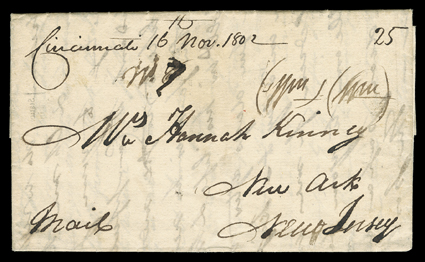 Cincinnati 16th Nov. 1802
25
Mrs Hannah Kinney
New Ark
New Jersey
Mail